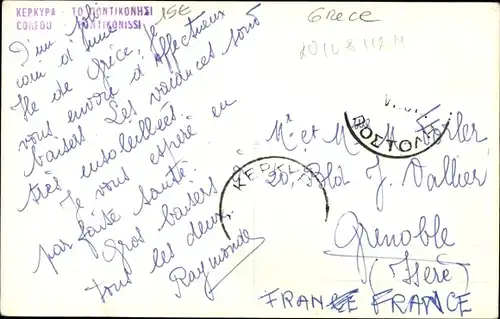 ΚΕΡΚΥΡΑ - ΤΟ ΠΟΝΤΙΚΟΝΗΣΙ
CORFOU - PONTIKONISSI
15€
D'un joli
coin d'une
Ile de Grèce, je
vous envoie d'affectueux
baisers. Les vacances sont
très ensoleillées.
Je vous espère en
parfaite santé.
Gros baisers à
tous les deux.
Raymonde
GRECE
Mr et M
20, Bld J. Vallier
Grenoble
(Isère)
FRANCE FRANCE